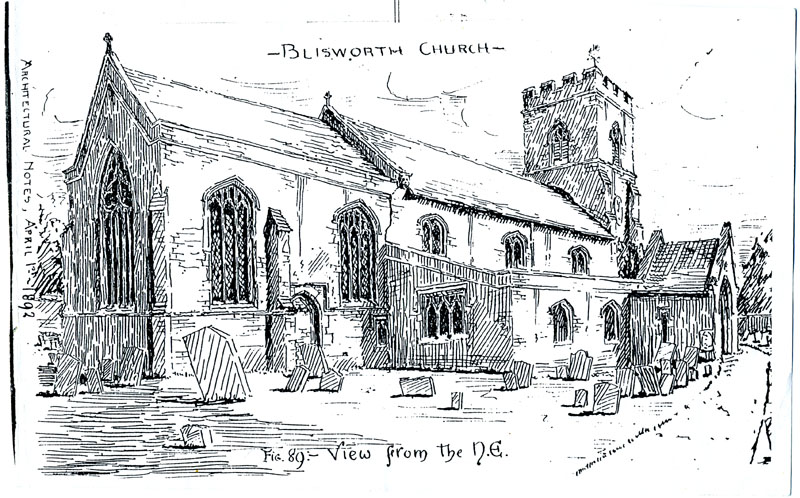 - BLISWORTH CHURCH -
ARCHITECTURAL NOTES, APRIL 1st 1892
FIG. 89:- View from the N.E.